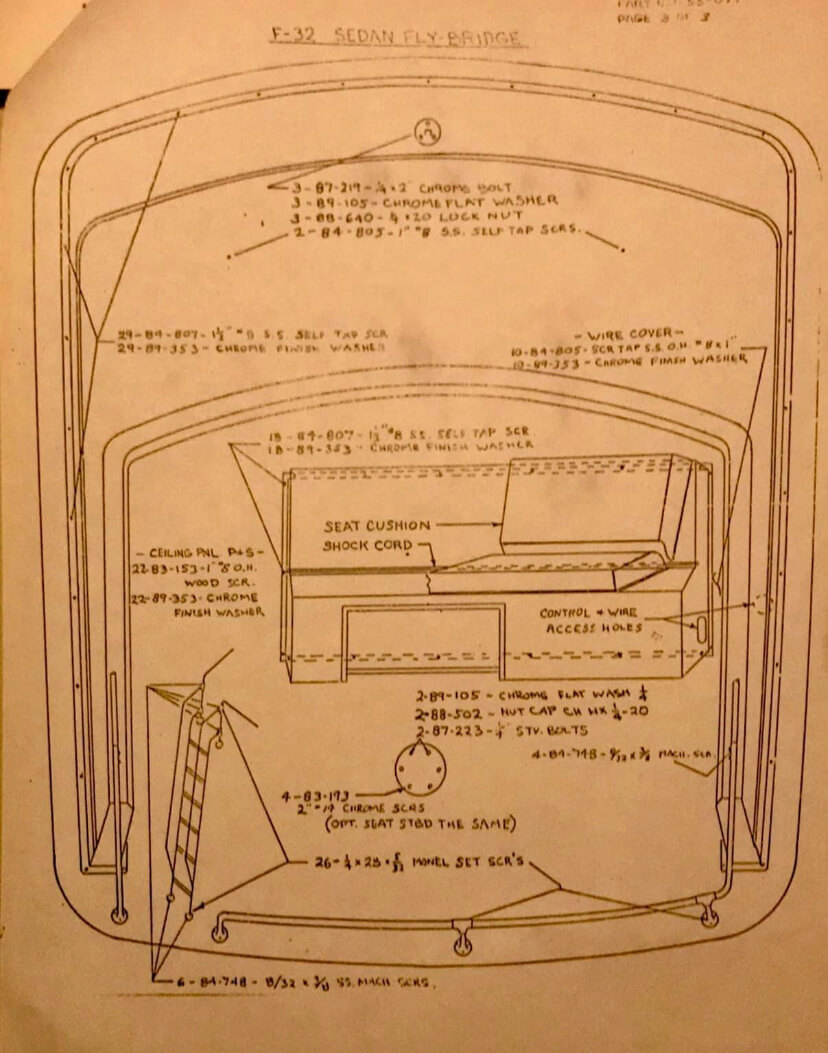 PAGE 3 OF 3
F-32 SEDAN FLY-BRIDGE
3-87-219-¼ x 2" CHROME BOLT
3-89-105-CHROME FLAT WASHER
3-88-640-¼ x 20 LOCK NUT
2-84-805-1" #8 S.S. SELF TAP SCRS.
29-84-807-1½" #8 S.S. SELF TAP SCR
29-89-353-CHROME FINISH WASHER
-WIRE COVER-
10-84-805-SCR TAP S.S. O.H. #8 x 1"
10-89-353-CHROME FINISH WASHER
18-84-807-1½" #8 SS. SELF TAP SCR.
18-89-353-CHROME FINISH WASHER
SEAT CUSHION
SHOCK CORD
-CEILING PNL P&S-
22-83-153-1" #8 O.H.
WOOD SCR.
22-89-353-CHROME
FINISH WASHER
CONTROL & WIRE
ACCESS HOLES
2-89-105-CHROME FLAT WASH ¼
2-88-502-NUT CAP CH HX ¼-20
2-87-223-¼" STV. BOLTS
4-84-748-8/32 x 3/8 MACH. SCR.
4-83-193
2" #14 CHROME SCRS
(OPT. SEAT STBD THE SAME)
26-¼ x 28 x 5/32 MONEL SET SCR'S
6-84-748-8/32 x 3/8 SS. MACH SCRS.